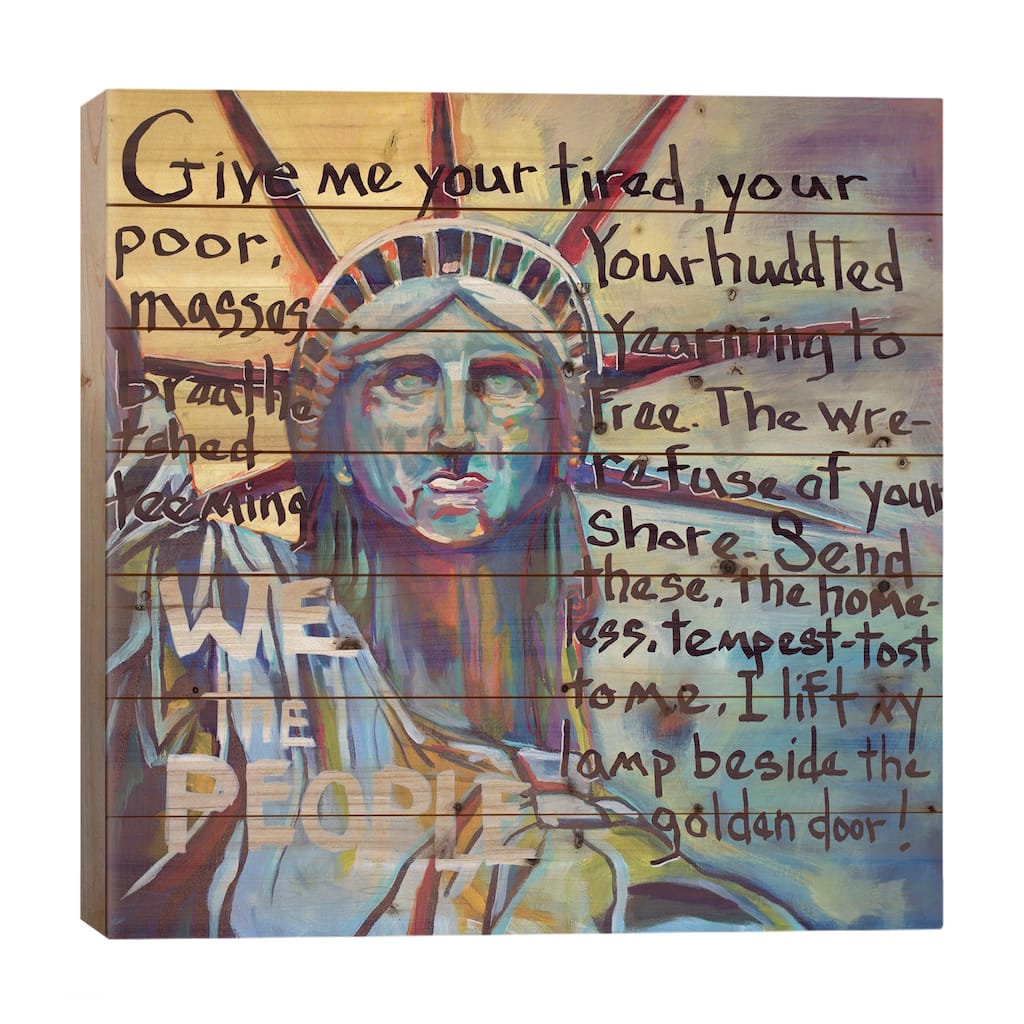 Give me your tired, your
poor, Your huddled
masses Yearning to
breathe Free. The wre-
tched refuse of your
teeming Shore. Send
these, the home-
less, tempest-tost
to me, I lift my
lamp beside the
golden door!
WE
THE
PEOPLE